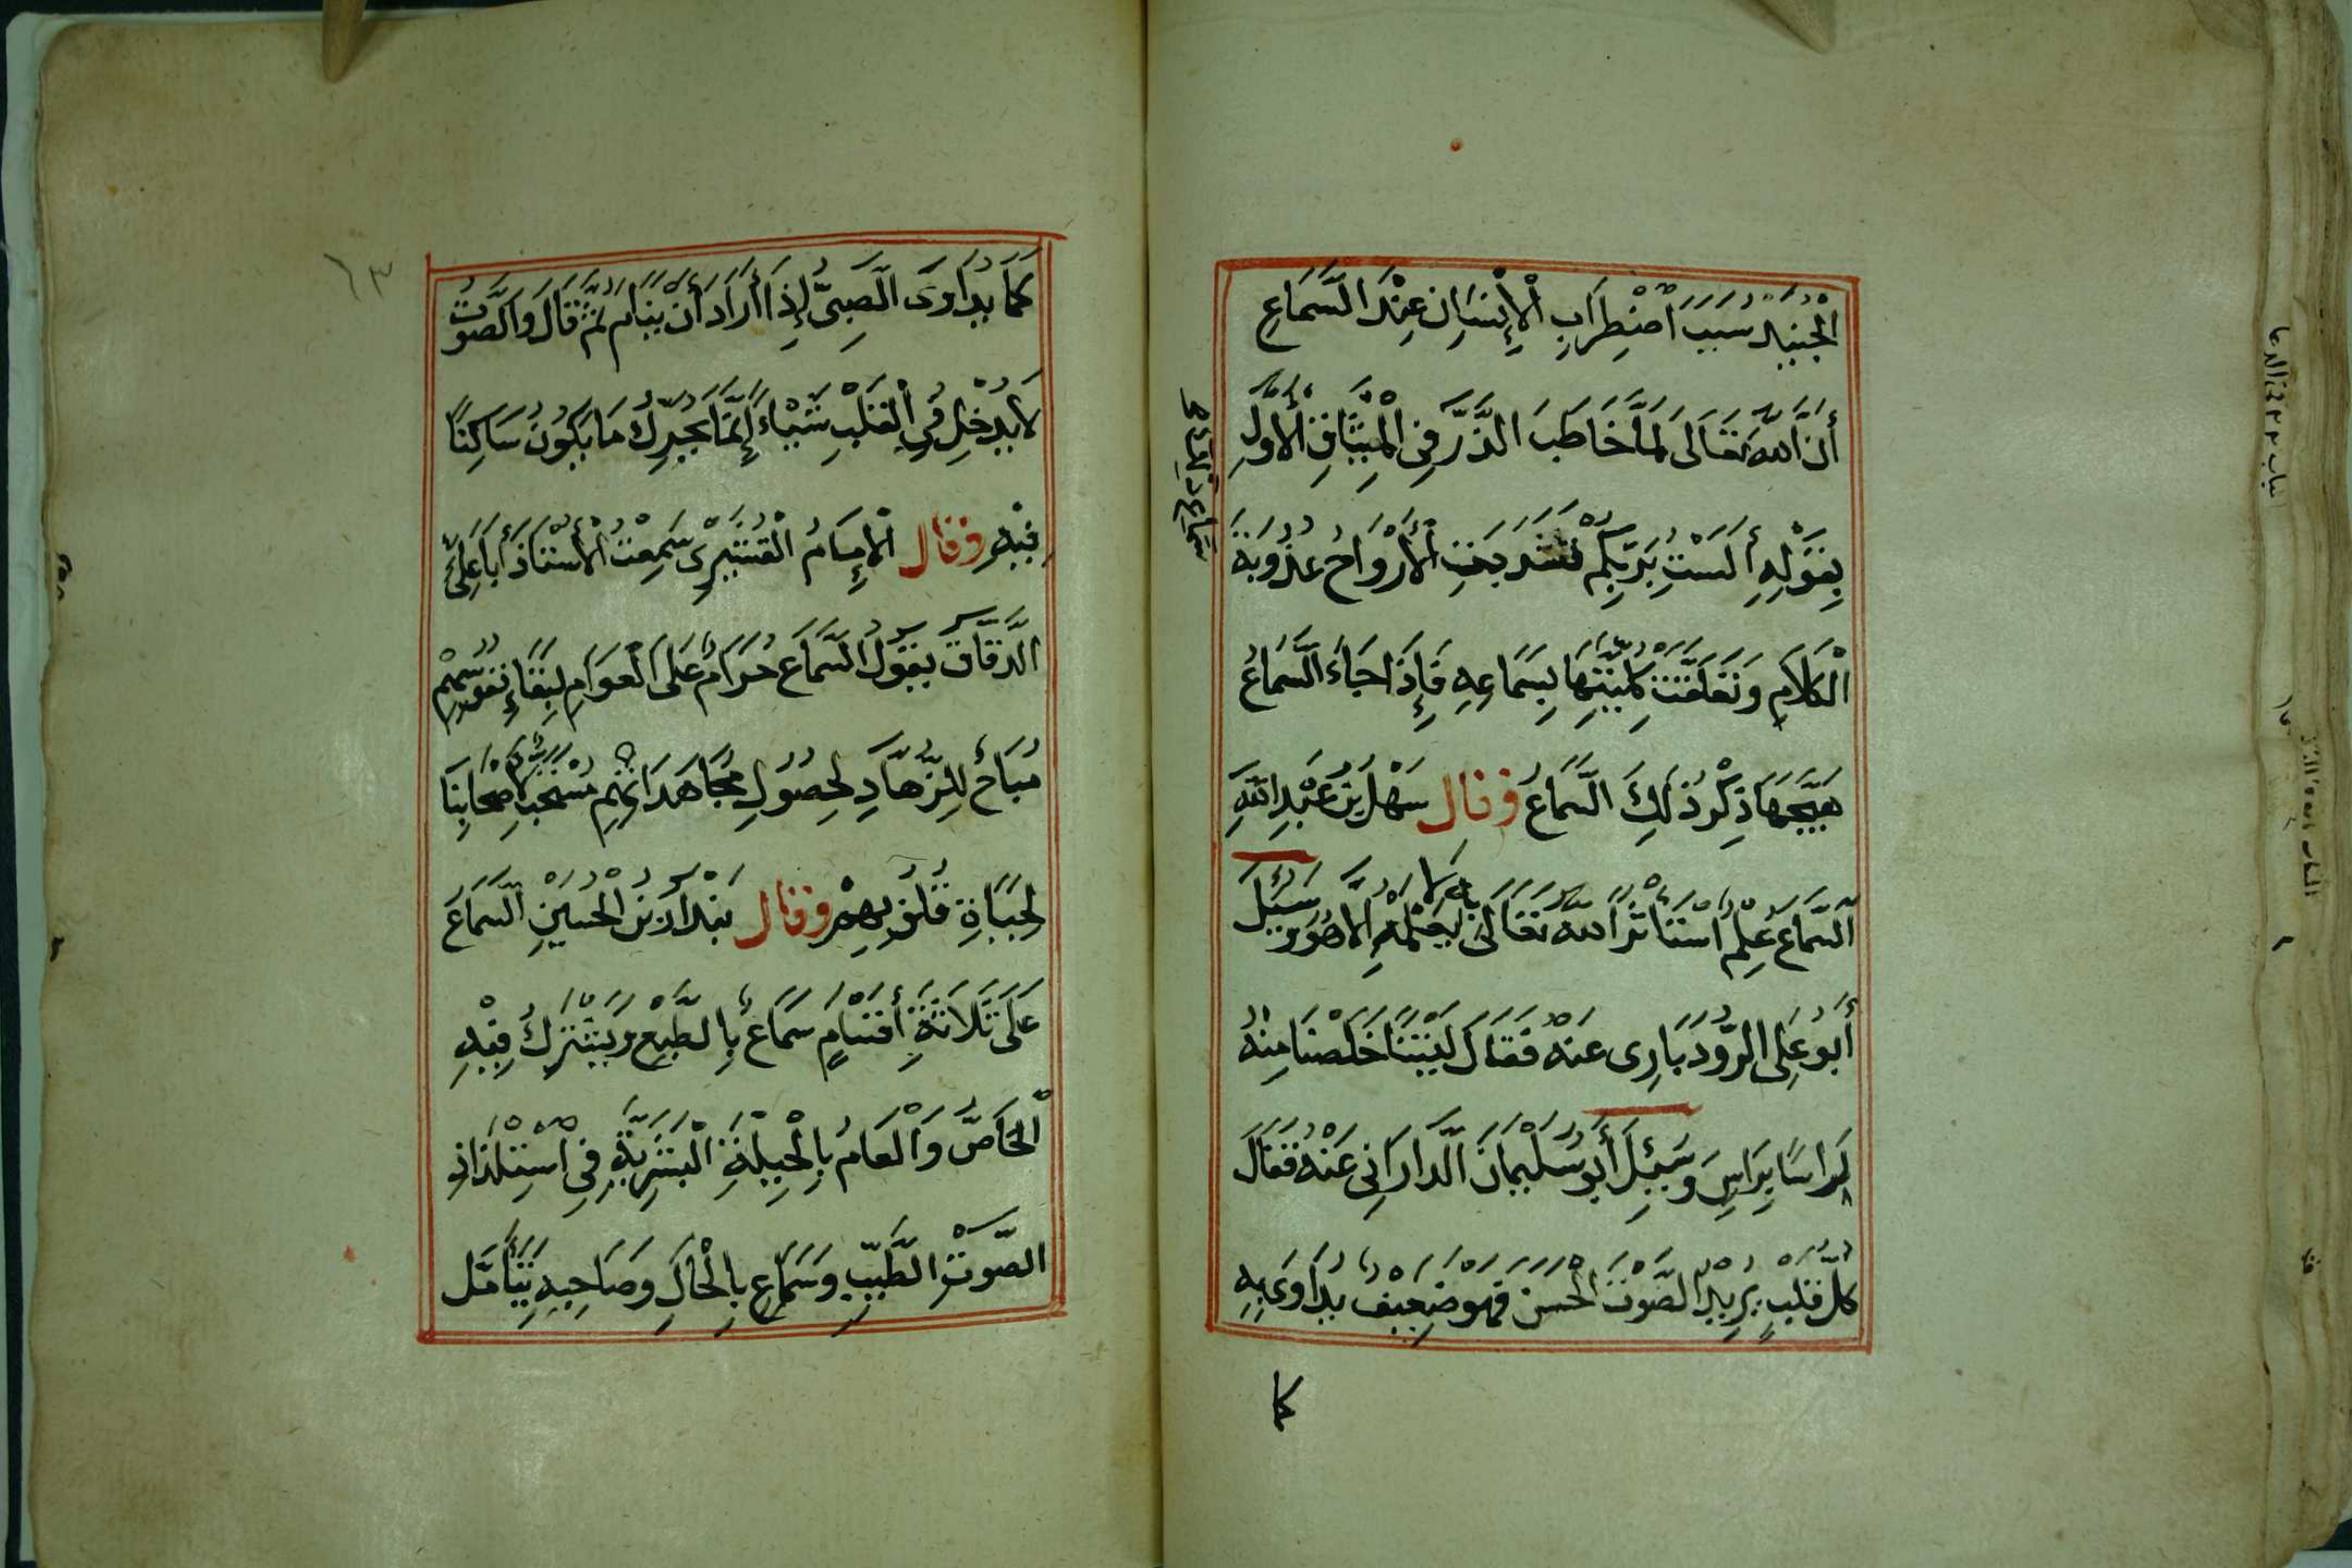 الْجُنَيْدُ سَبَبُ اضْطِرَابِ الْإِنْسَانِ عِنْدَ السَّمَاعِ
أَنَّ اللّٰهَ تَعَالَى لَمَّا خَاطَبَ الذَّرَّ فِى الْمِيثَاقِ الْأَوَّلِ
بِقَوْلِهِ أَلَسْتُ بِرَبِّكُمْ عُذُوبَةَ الْأَرْوَاحُ
الْكَلَامِ وَتَعَلَّقَتْ كُلِّيَّتُهَا بِسَمَاعِهِ فَإِذَا جَاءَ السَّمَاعُ
هَيَّجَهَا ذِكْرُ ذٰلِكَ السَّمَاعُ وقال سَهْلُ بْنُ عَبْدِ اللّٰهِ
اَلسَّمَاعُ عِلْمٌ اسْتَأْثَرَ اللّٰهُ تَعَالَى بِهِ لَا يَعْلَمُهُ إِلَّا هُوَ وَسُئِلَ
أَبُو عَلِى الرُّودَبَارِى عَنْهُ فَقَالَ لَيْتَنَا خَلَصْنَا مِنْهُ
رَاسًا بِرَاسٍ وَسُئِلَ أَبُو سُلَيْمَانَ الدَّارَانِى عَنْهُ فَقَالَ
كُلُّ قَلْبٍ يُرِيدُ الصَّوْتَ الْحَسَنَ فَهُوَ ضَعِيفٌ يُدَاوَى بِهِ
كما
١٣
كَمَا يُدَاوَى الصَّبِىُّ إِذَا أَرَادَ أَنْ يَنَامَ ثُمَّ قَالَ وَالصَّوْتُ
لَا يُدْخِلُ فِى الْقَلْبِ شَيْاءً إِنَّمَا يُحَرِّكُ مَا يَكُونُ سَاكِنًا
فِيْهِ وقال الْإِمَامُ الْقُشَيْرِى سَمِعْتُ الْأُسْتَاذَ أَبَا عَلِىٍّ
الدَّقَّاقَ يَقُولُ السَّمَاعُ حَرَامٌ عَلَى الْعَوَامِ لِبَقَاءِ نُفُوسِهِمْ
مُبَاحٌ لِلزُّهَّادِ لِحُصُولِ مُجَاهَدَاتِهِمْ مُسْتَحَبٌّ لِأَصْحَابِنَا
لِحَيَاةِ قُلُوبِهِمْ وقال بُنْدَارُ بْنُ الْحُسَيْنِ السَّمَاعُ
عَلَى ثَلَاثَةِ أَقْسَامٍ سَمَاعٌ بِالطَّبْعِ وَيَشْتَرِكُ فِيْهِ
الْخَاصُّ وَالْعَامُ بِالْجِبِلَّةِ الْبَشَرِيَّةِ فِى اسْتِلْذَاذِ
الصَّوْتِ الطَّيِّبِ وَسَمَاعٌ بِالْحَالِ وَصَاحِبُهُ يَتَأَمَّل